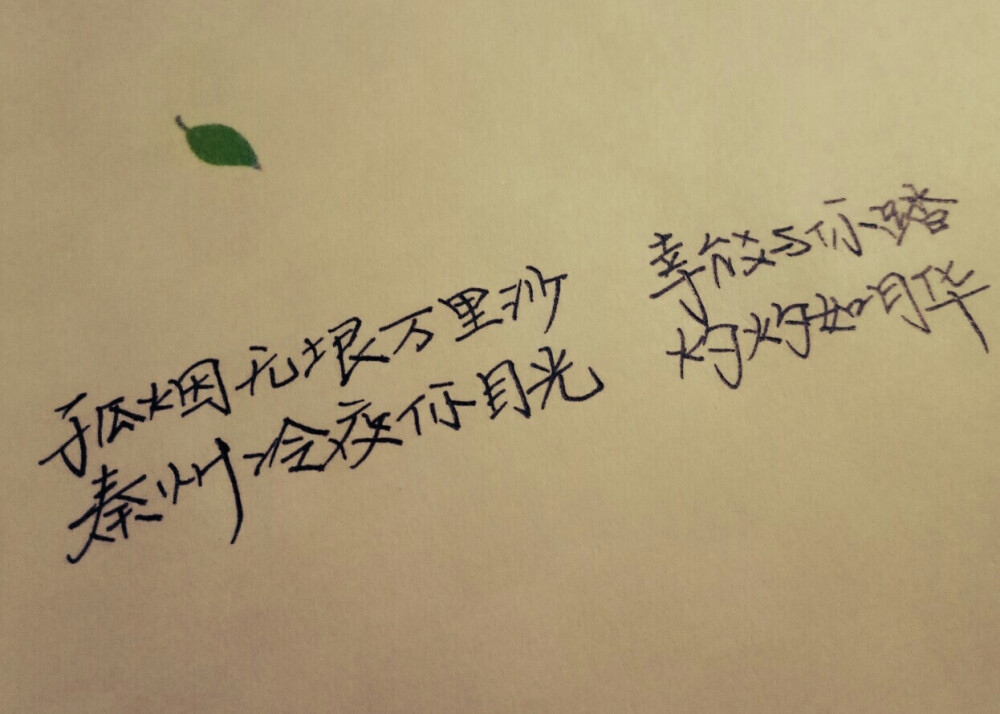 孤烟无垠万里沙 幸能与你踏
秦州冷夜你目光 灼灼如月华